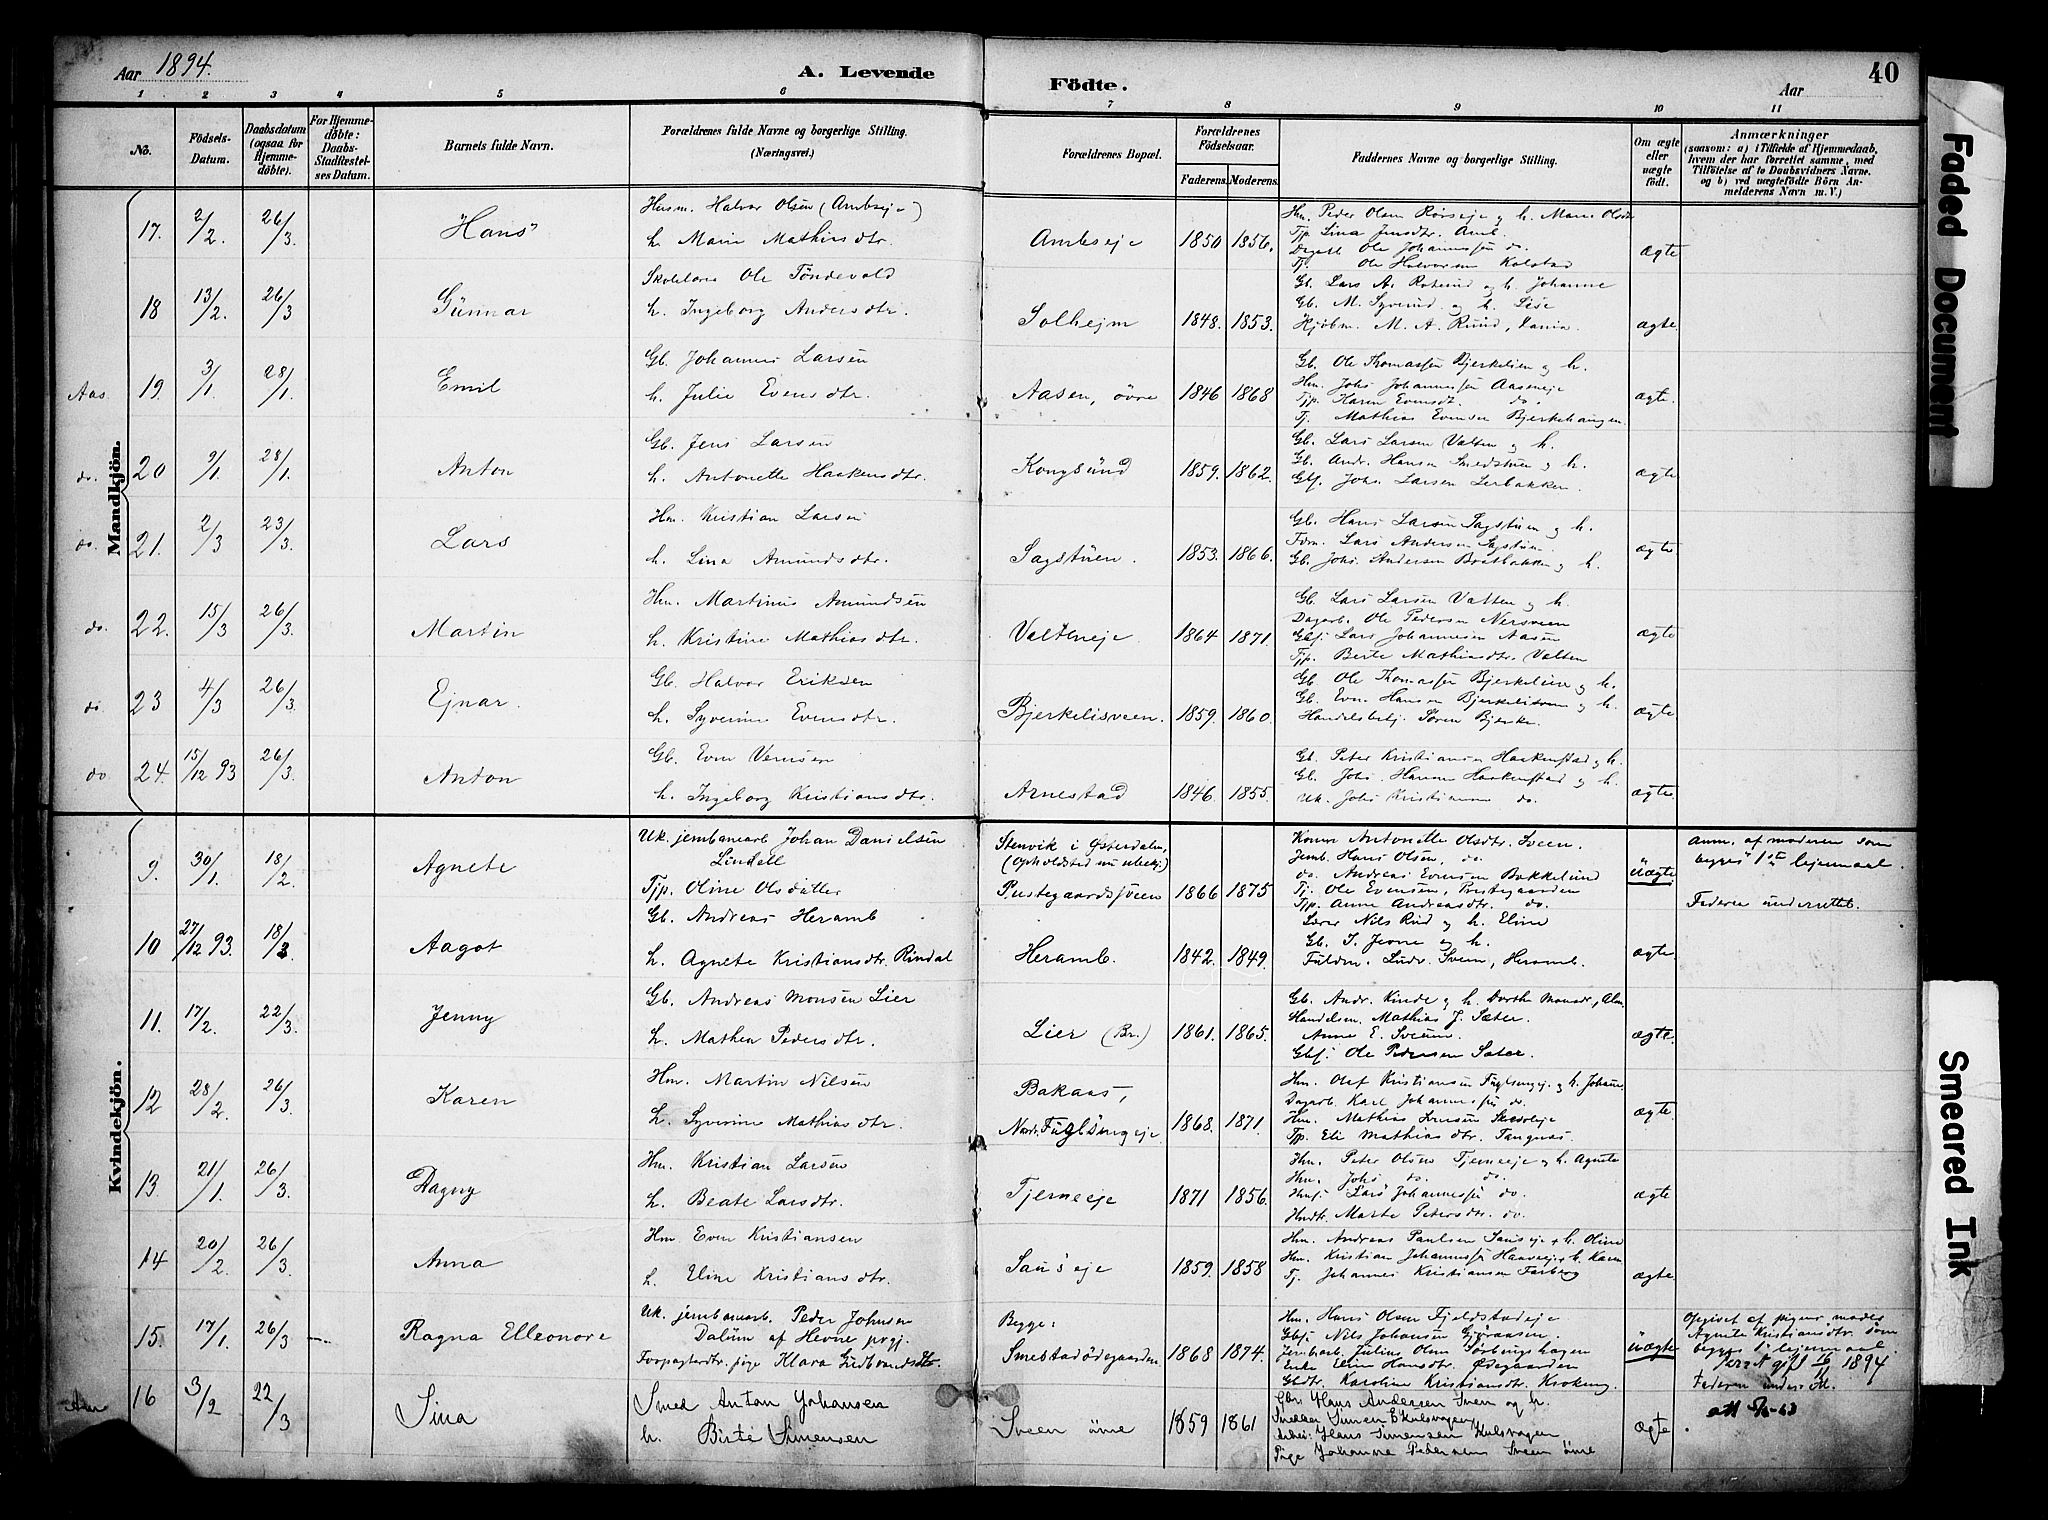 Aar 1894.
A. Levende
Födte.
Aar
40
1 2 3 4 5 6 7 8 9 10 11
No.
Födsels-Datum.
Daabsdatum (ogsaa for Hjemmedøbte).
For Hjemmedøbte: Daabs-Stadfæstelses Datum.
Barnets fulde Navn.
Forældrenes fulde Navne og borgerlige Stilling. (Næringsvei.)
Forældrenes Bopæl.
Forældrenes Födselsaar.
Faderens. Moderens.
Faddernes Navne og borgerlige Stilling.
Om ægte eller uægte födt.
Anmærkninger (saasom: a) i Tilfælde af Hjemmedaab, hvem der har forrettet samme, med Tilföielse af to Daabsvidners Navne, og b) ved uægtefödte Börn Anmelderens Navn m. V.)
Mandkjön.
17. 2/2. 26/3. Hans
Husm. Halvor Olsen (Ambseje)
h. Marie Mathiasdtr.
Ambseje 1850 1856. ægte
Hm. Peder Olsen Rörseje og h. Mari Olsdtr
Tjp. Lina Jensdtr. Amb.
Dagarb. Ole Johannessen do.
Tj. Ole Halvorsen Kolstad
18 13/2. 26/3 Gunnar
Skolelærer Ole Töndevold
h. Ingeborg Andersdtr.
Solhejm 1848. 1853. ægte
Gb. Lars A. Roterud og h. Johanne
Gb. M. Syverud og h. Lise
Kjöbm. M. A. Ruud,
Aas. 19. 3/1. 28/1. Emil
Gb. Johannes Larsen
h. Julie Evensdtr.
Aasen, övre 1846 1868 ægte.
Gb. Ole Thomassen Bjerkelien og h.
Hm. Johs Johannessen Aasseneje
Tjp. Karen Evensdt. do.
Tj. Mathias Evensen Bjerkehaugen.
do. 20 9/1. 28/1. Anton
Gb. Jens Larsen
h. Antonette Haakensdtr.
Kongsund 1859. 1862. ægte
Gb. Lars Larsen Valten og h.
Gb. Andr. Hansen Smedstuen og h.
Gbs. Johs. Larsen Lerbakken.
do. 21. 2/3 23/3. Lars
Hm. Kristian Larsen
h. Lina Amundsdtr.
Sagstuen. 1853. 1866. ægte
Gb. Hans Larsen Sagstuen og h.
Tdm. Lars Andersen Sagstuen.
Gb. Johs. Andersen Bratbakken og h.
do. 22. 15/3 26/3. Martin
Hm. Martinus Amundsen
h. Kristine Mathiasdtr.
Valteneje 1864 1871. ægte
Gb. Lars Larsen Valten og h.
Dagarb. Ole Pedersen Nersveen
Gbs. Lars Johannesen Aasen
Tjp. Berte Mathiasdtr. Valten
do 23 4/3 26/3. Ejnar.
Gb. Halvor Eriksen
h. Syverine Evensdtr.
Bjerkelisveen. 1859. 1860. ægte
Gb. Ole Thomassen Bjerkelien og h.
Gb. Even Hansen Bjerkelisveen og h.
Handelsbetj. Sören Bjerke.
do 24. 15/12 93 26/3. Anton
Gb. Even
h. Ingeborg Kristiansdtr.
Arnestad 1846. 1855. ægte.
Gb. Peter Kristiansen Haakenstad og h.
Gb. Johs. Hansen Haakenstad og h.
Uk. Johs Kristiansen do.
Kvindekjön.
9. 30/1. 18/2. Agnete
Uk. jernbanearb Johan Danielsen
Lindell
Tjp. Oline Olsdatter
Stenvik i Österdalen,
(Opholdsted nu ubekj.)
Prestegaardssveen 1866 1875 uægte
Konen Antonette Olsdtr. Sveen.
Jernb. Hans Olsen, do.
do. Andreas Evensen Bakkelund
Tj. Ole Evensen, Prestegaarden
Tjp. Anne Andreasdtr. do.
Anm. af moderen som
begges 1ste lejermaal.
Faderen underrettet.
10 27/12 93. 18/3. Aagot
Gb. Andreas Heramb
h. Agnete Kristiansdtr. Rindal
Heramb. 1842. 1849. ægte.
Lærer Nils Rud og h. Eline
Gb. S. Jevne og h.
Fuldm. Ludv. Sveen, Heramb.
11. 17/2. 22/3. Jenny
Gb. Andreas Monsen Lier
h. Mathea Pedersdtr.
Lier (Br.) 1861. 1865. ægte.
Gb. Andr. Kinde og h. Dorthe Monsdr,
Handelsm. Mathias J. Sæter.
Anne E. Sveum.
Gbs. Ole Pedersen Sæter.
12 28/2. 26/3. Karen
Hm. Martin Nilsen
h. Syverine Mathiasdtr.
Bakaas,
Nordr. Fuglsengeje 1868. 1871. ægte
Hm. Olaf Kristiansen Fuglsengej. og h. Johanne
Dagarb. Karl Johannessen do.
Hm. Mathias Jensen
Tjp. Eli Mathiasdtr. Tangnæs.
13. 21/1. 26/3. Dagny
Hm. Kristian Larsen
h. Beate Larsdtr.
Tjerneeje 1871 1856. ægte
Hm. Peter Olsen Tjerneeje og h. Agnete
Hm. Johs do. do.
Hms. Lars Johannessen do.
Hmdtr. Marte Petersdtr. do.
14 20/2. 26/3. Anna
Hm Even Kristiansen
h. Eline Kristiansdtr.
Sauseje 1859. 1858 ægte
Hm. Andreas Paulsen Sauseje og h. Oline
Hm. Kristian Johannessen og h. Karen
Tj. Johannes Kristiansen Farberg
15. 17/1. 26/3 Ragna Elleonore
Uk. jernbanearb. Peder Johnsen
Dalum af Hevne prgj.
Forpagterdtr. pige Klara Gudbrandsdtr.
Begge:
Smestadödegaarden. 1868 1874. uægte
Hm. Hans Olsen Fjeldstadeje
Gbs. Nils Johansen Gjöraasen.
Jernbarb. Julius Olsen Sörbingshagen
Enke Eline Hansdtr. Ödegaarden
Gbdtr. Karoline Kristiansdtr. Krokeng.
Opgivet af pigens moder
Agnete Kristiansdtr. som
begges 1ste lejermaal.
gift 16/11 1894
Faderen underr.
att 5/5-63
16 3/2 22/3 Sina
Smed Anton Johansen
h. Birte Simensen
Sveen övre 1859 1861 ægte
Gbr. Hans Andersen Sveen og h.
Snekker Simen E Hulsvagen
Arbei: Hans Simensen Hulsvagen
Pige Johanne Pedersen Sveen övre
Faded Document
Smeared Ink